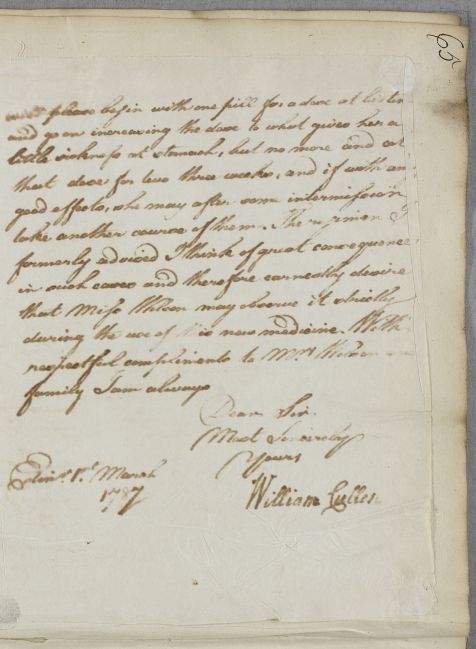 65
please begin with one pill for a dose at bedtime
and go on increasing the dose to what gives her a
little sickness at stomach, but no more and at
that dose for two three weeks, and if with any
good effects, she may after some intermission
take another course of them. The regimen I
formerly advised I think of great consequence
in such cases and therefore earnestly desire
that Miss Wilson may observe it strictly
during the use of new medicine. With
respectful compliments to Mrs. Wilson and
family I am always
Dear Sir
Most Sincerely
Yours
William Cullen
Edinr. 1st March
1787